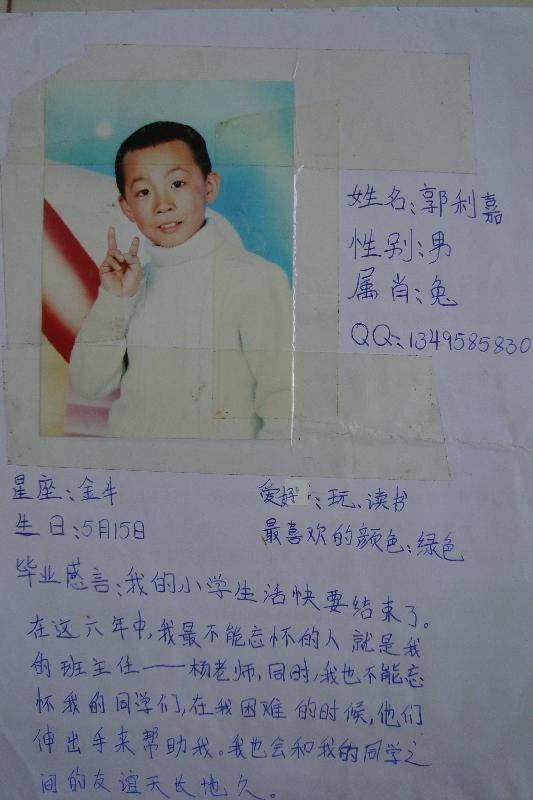 姓名:郭利嘉
性别:男
属肖:兔
QQ:1349585830
星座:金牛
爱好:玩、读书
生日:5月15日
最喜欢的颜色:绿色
毕业感言:我的小学生活快要结束了。
在这六年中,我最不能忘怀的人就是我
的班主任——杨老师,同时,我也不能忘
怀我的同学们,在我困难的时候,他们
伸出手来帮助我。我也会和我的同学之
间的友谊天长地久。